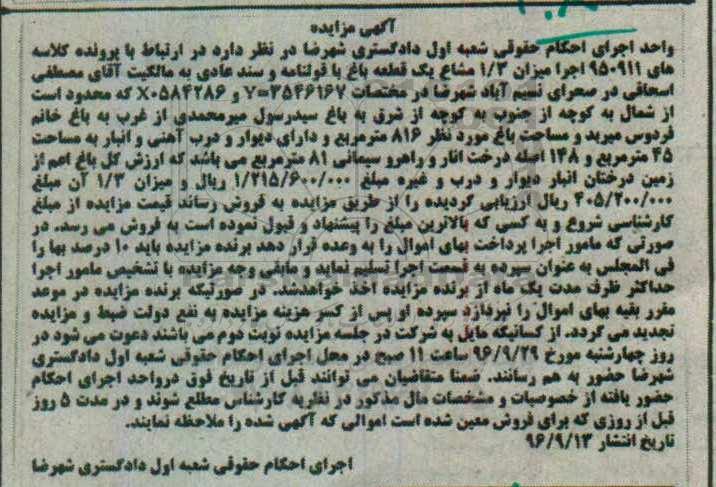 آگهی مزایده
واحد اجرای احکام حقوقی شعبه اول دادگستری شهرضا در نظر دارد در ارتباط با پرونده کلاسه
های ۹۵۰۹۱۱ اجرا میزان ۱/۳ مشاع یک قطعه باغ با قولنامه و سند عادی به مالکیت آقای مصطفی
اسحاقی در صحرای نسیم آباد شهرضا در مختصات Y=۳۵۴۶۱۶۷ و X۰۵۸۴۲۸۶ که محدود است
از شمال به کوچه از جنوب به کوچه از شرق به باغ سیدرسول میرمحمدی از غرب به باغ خانم
فردوس میرید و مساحت باغ مورد نظر ۸۱۶ مترمربع و دارای دیوار و درب آهنی و انبار به مساحت
۴۵ مترمربع و ۱۴۸ اصله درخت انار و راهرو سیمانی ۸۱ مترمربع می باشد که ارزش کل باغ اعم از
زمین درختان انبار دیوار و درب و غیره مبلغ ۱/۲۱۵/۶۰۰/۰۰۰ ریال و میزان ۱/۳ آن مبلغ
۴۰۵/۲۰۰/۰۰۰ ریال ارزیابی گردیده را از طریق مزایده به فروش رساند قیمت مزایده از مبلغ
کارشناسی شروع و به کسی که بالاترین مبلغ را پیشنهاد و قبول نموده است به فروش می رسد. در
صورتی که مامور اجرا پرداخت بهای اموال را به وعده قرار دهد برنده مزایده باید ۱۰ درصد بها را
فی المجلس به عنوان سپرده به قسمت اجرا تسلیم نماید و مابقی وجه مزایده با تشخیص مامور اجرا
حداکثر ظرف مدت یک ماه از برنده مزایده اخذ خواهدشد. در صورتیکه برنده مزایده در موعد
مقرر بقیه بهای اموال را نپردازد سپرده او پس از کسر هزینه مزایده به نفع دولت ضبط و مزایده
تجدید می گردد. از کسانیکه مایل به شرکت در جلسه مزایده نوبت دوم می باشند دعوت می شود در
روز چهارشنبه مورخ ۹۶/۹/۲۹ ساعت ۱۱ صبح در محل اجرای احکام حقوقی شعبه اول دادگستری
شهرضا حضور به هم رسانند. ضمنا متقاضیان می توانند قبل از تاریخ فوق درواحد اجرای احکام
حضور یافته از خصوصیات و مشخصات مال مذکور در نظریه کارشناس مطلع شوند و در مدت ۵ روز
قبل از روزی که برای فروش معین شده است اموالی که آگهی شده را ملاحظه نمایند.
تاریخ انتشار ۹۶/۹/۱۳
اجرای احکام حقوقی شعبه اول دادگستری شهرضا